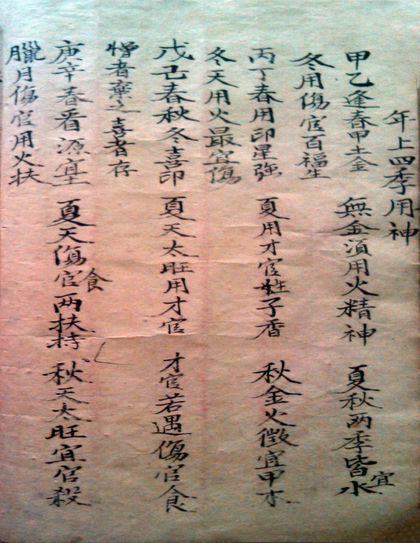 年上四季用神
甲乙逢春甲土金 無金須用火精神 夏秋两季皆宜水
冬用傷官百福生
丙丁春用印星強 夏用才官姓子香 秋金火微宜甲木
冬天用火最宜傷
戊己春秋冬喜印 夏天太旺用才官 才官若遇傷官食
憎者棄之喜者存
庚辛春看源 夏天傷官食两扶持 秋天太旺宜官殺
臘月傷官用火扶